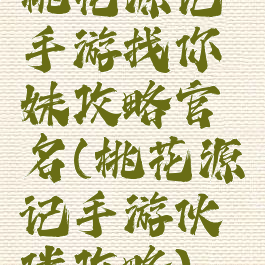 桃花源记
手游找你
妹攻略官
名(桃花源
记手游伙
伴攻略)